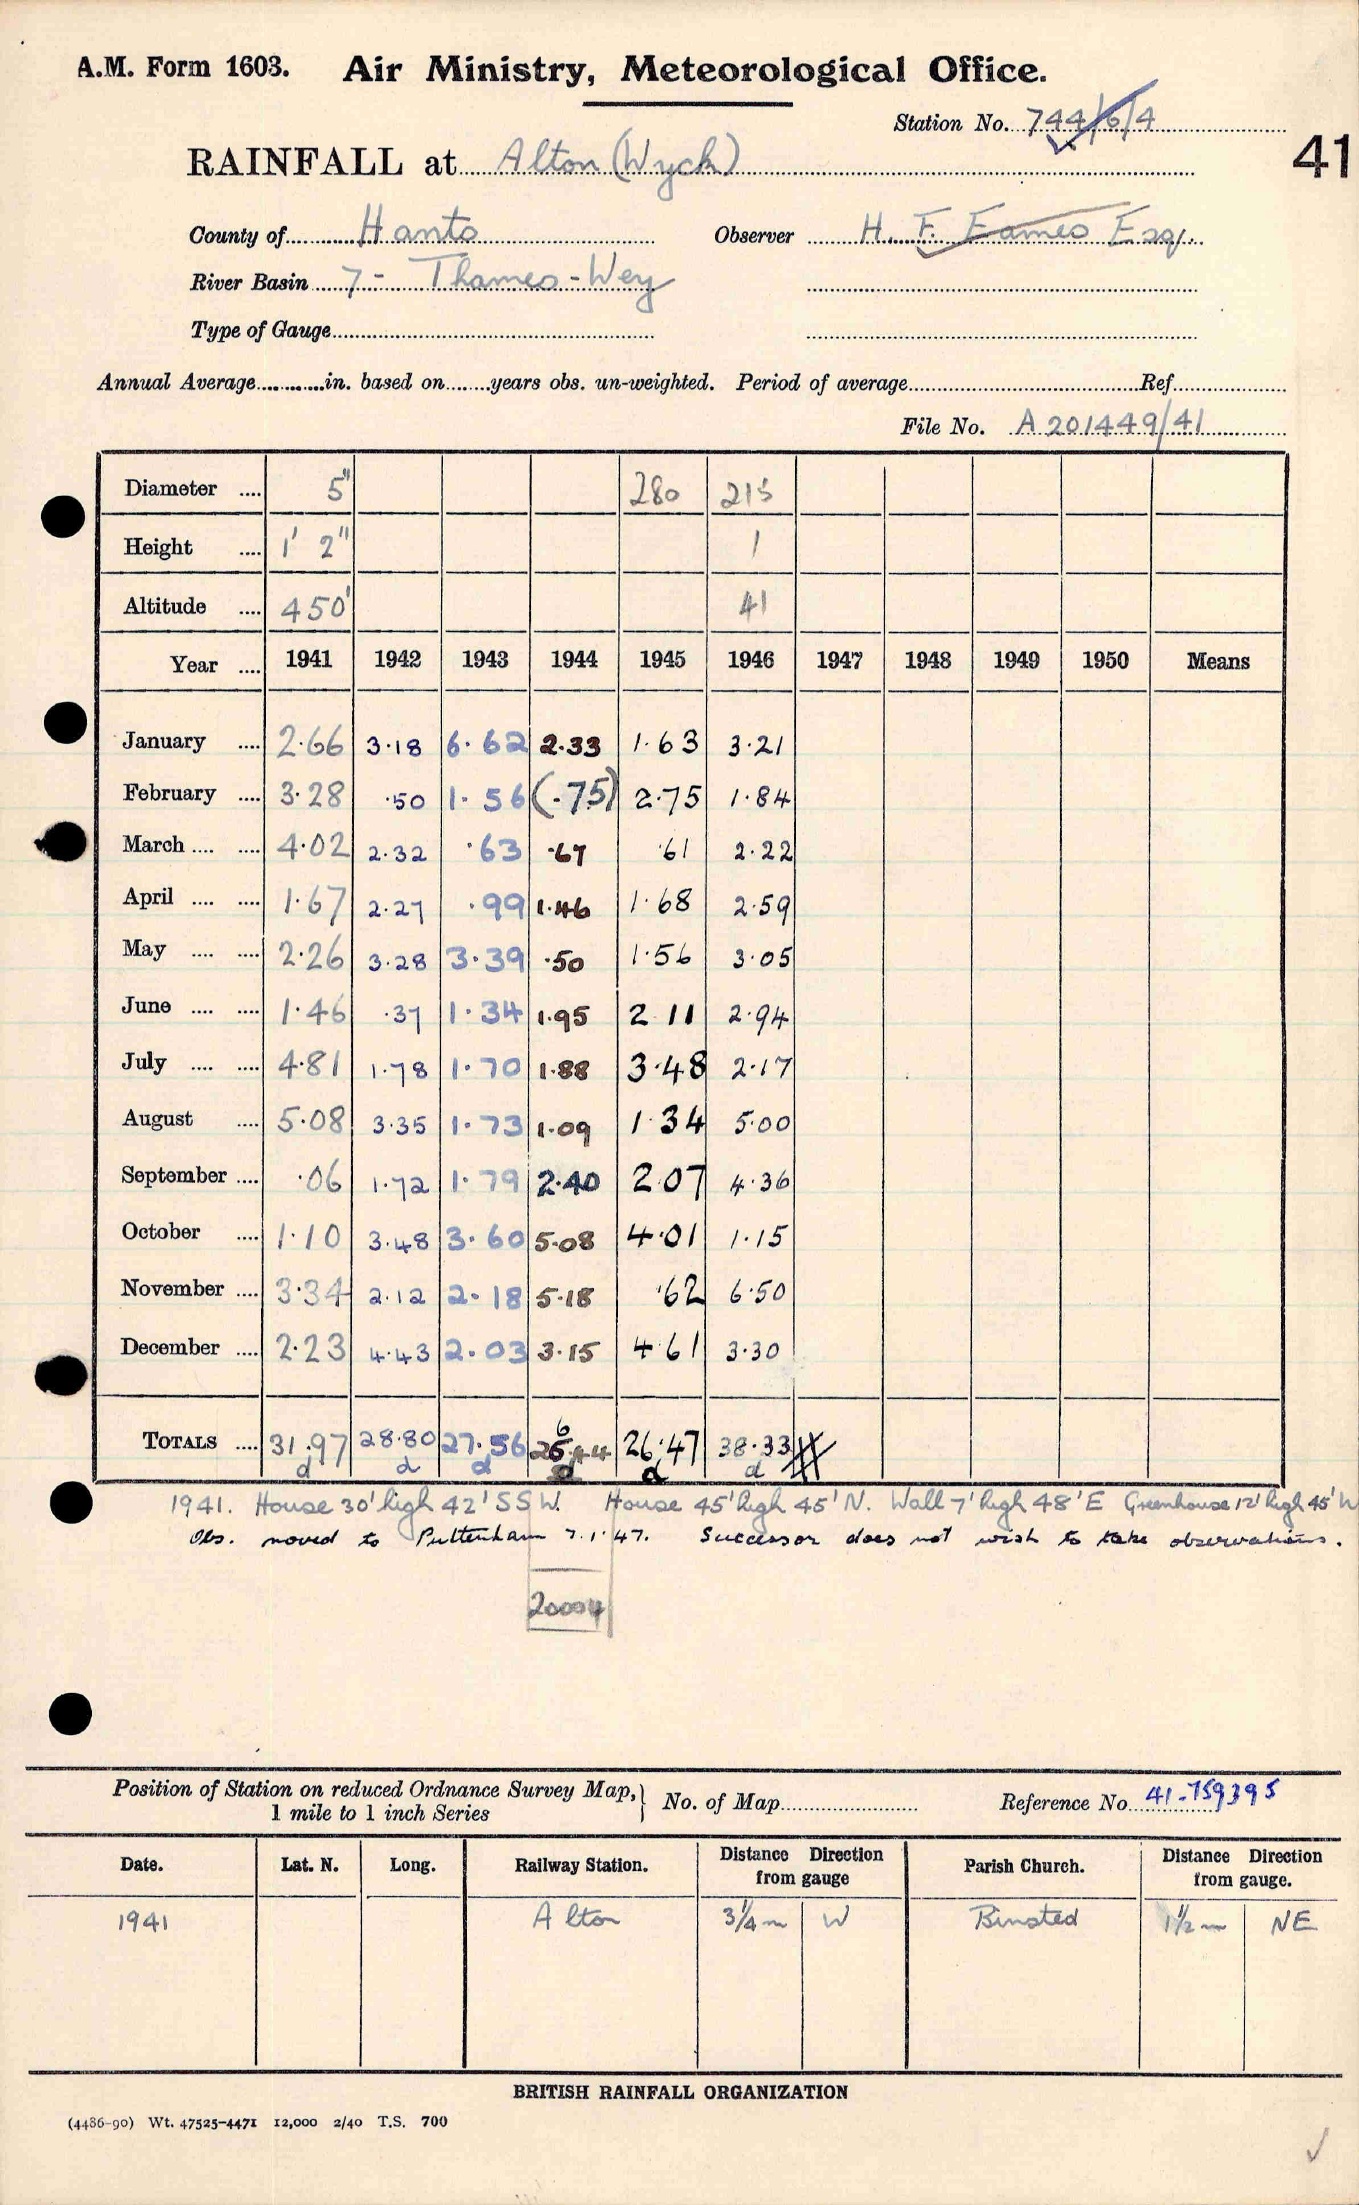 A.M. Form 1603. Air Ministry, Meteorological Office.
Station No. 744/6/4
41
RAINFALL at Alton (Wyck)
County of Hants Observer H. F. Eames Esq.
River Basin 7 - Thames - Wey
Type of Gauge
Annual Average in. based on years obs. un-weighted. Period of average Ref
File No. A 201449/41
Diameter .... 5" 280 215
Height .... 1' 2" 1
Altitude .... 450' 41
Year .... 1941 1942 1943 1944 1945 1946 1947 1948 1949 1950 Means
January .... 2.66 3.18 6.62 2.33 1.63 3.21
February .... 3.28 .50 1.56 (.75) 2.75 1.84
March .... .... 4.02 2.32 .63 .67 .61 2.22
April .... .... 1.67 2.27 .99 1.46 1.68 2.59
May .... .... 2.26 3.28 3.39 .50 1.56 3.05
June .... .... 1.46 .37 1.34 1.95 2 11 2.94
July .... .... 4.81 1.78 1.70 1.88 3.48 2.17
August .... 5.08 3.35 1.73 1.09 1.34 5.00
September .... .06 1.72 1.79 2.40 2.07 4.36
October .... 1.10 3.48 3.60 5.08 4.01 1.15
November .... 3.34 2.12 2.18 5.18 .62 6.50
December .... 2.23 4.43 2.03 3.15 4.61 3.30
6
TOTALS .... 31.97 28.80 27.56 26.44 26.47 38.33
d d d d d d
1941. House 30' high 42' SSW. House 45' high 45' N. Wall 7' high 48' E Greenhouse 12' high 45' W
Obs. moved to Puttenham 7.1.47. Successor does not wish to take observations.
20004
Position of Station on reduced Ordnance Survey Map, 1 mile to 1 inch Series No. of Map Reference No 41-759395
Date. Lat. N. Long. Railway Station. Distance Direction from gauge Parish Church. Distance Direction from gauge.
1941 Alton 3¼ m W Binsted 1½ m NE
BRITISH RAINFALL ORGANIZATION
(4486-90) Wt. 47525-4471 12,000 2/40 T.S. 700